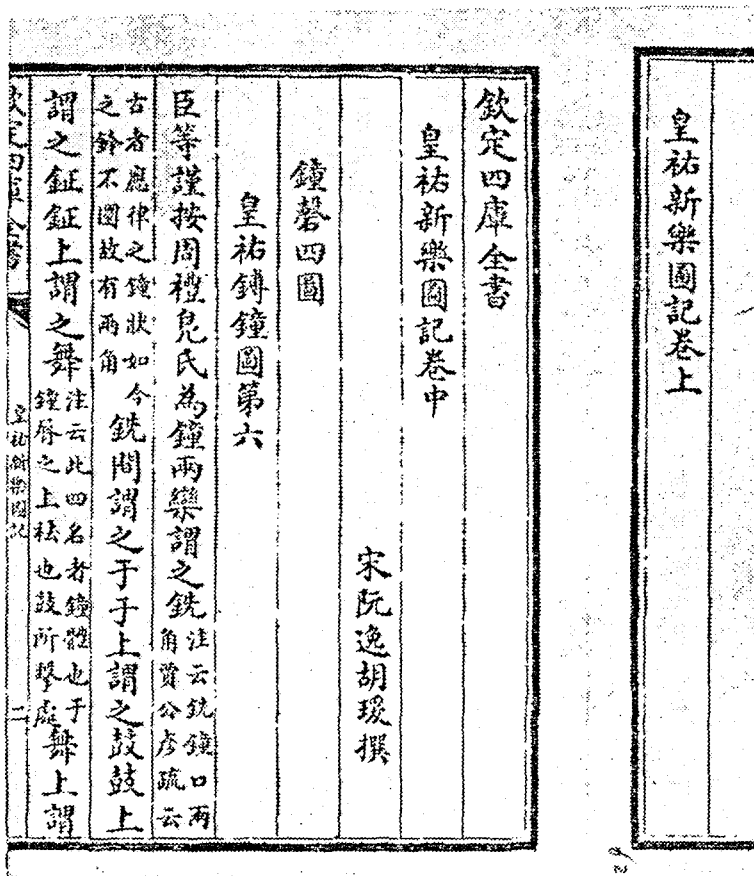 皇祐新樂圖記卷上
欽定四庫全書
皇祐新樂圖記卷中
宋阮逸胡瑗撰
鐘磬四圖
皇祐鎛鐘圖第六
臣等謹按周禮鳧氏為鐘兩欒謂之銑注云銑鐘口兩角賈公彥疏云
古者應律之鐘狀如今之鈴不圜故有兩角銑間謂之于于上謂之鼓鼓上
謂之鉦鉦上謂之舞注云此四名者鐘體也于鐘脣之上袪也鼓所擊處舞上謂
欽定四庫全書
皇祐新樂圖記
二